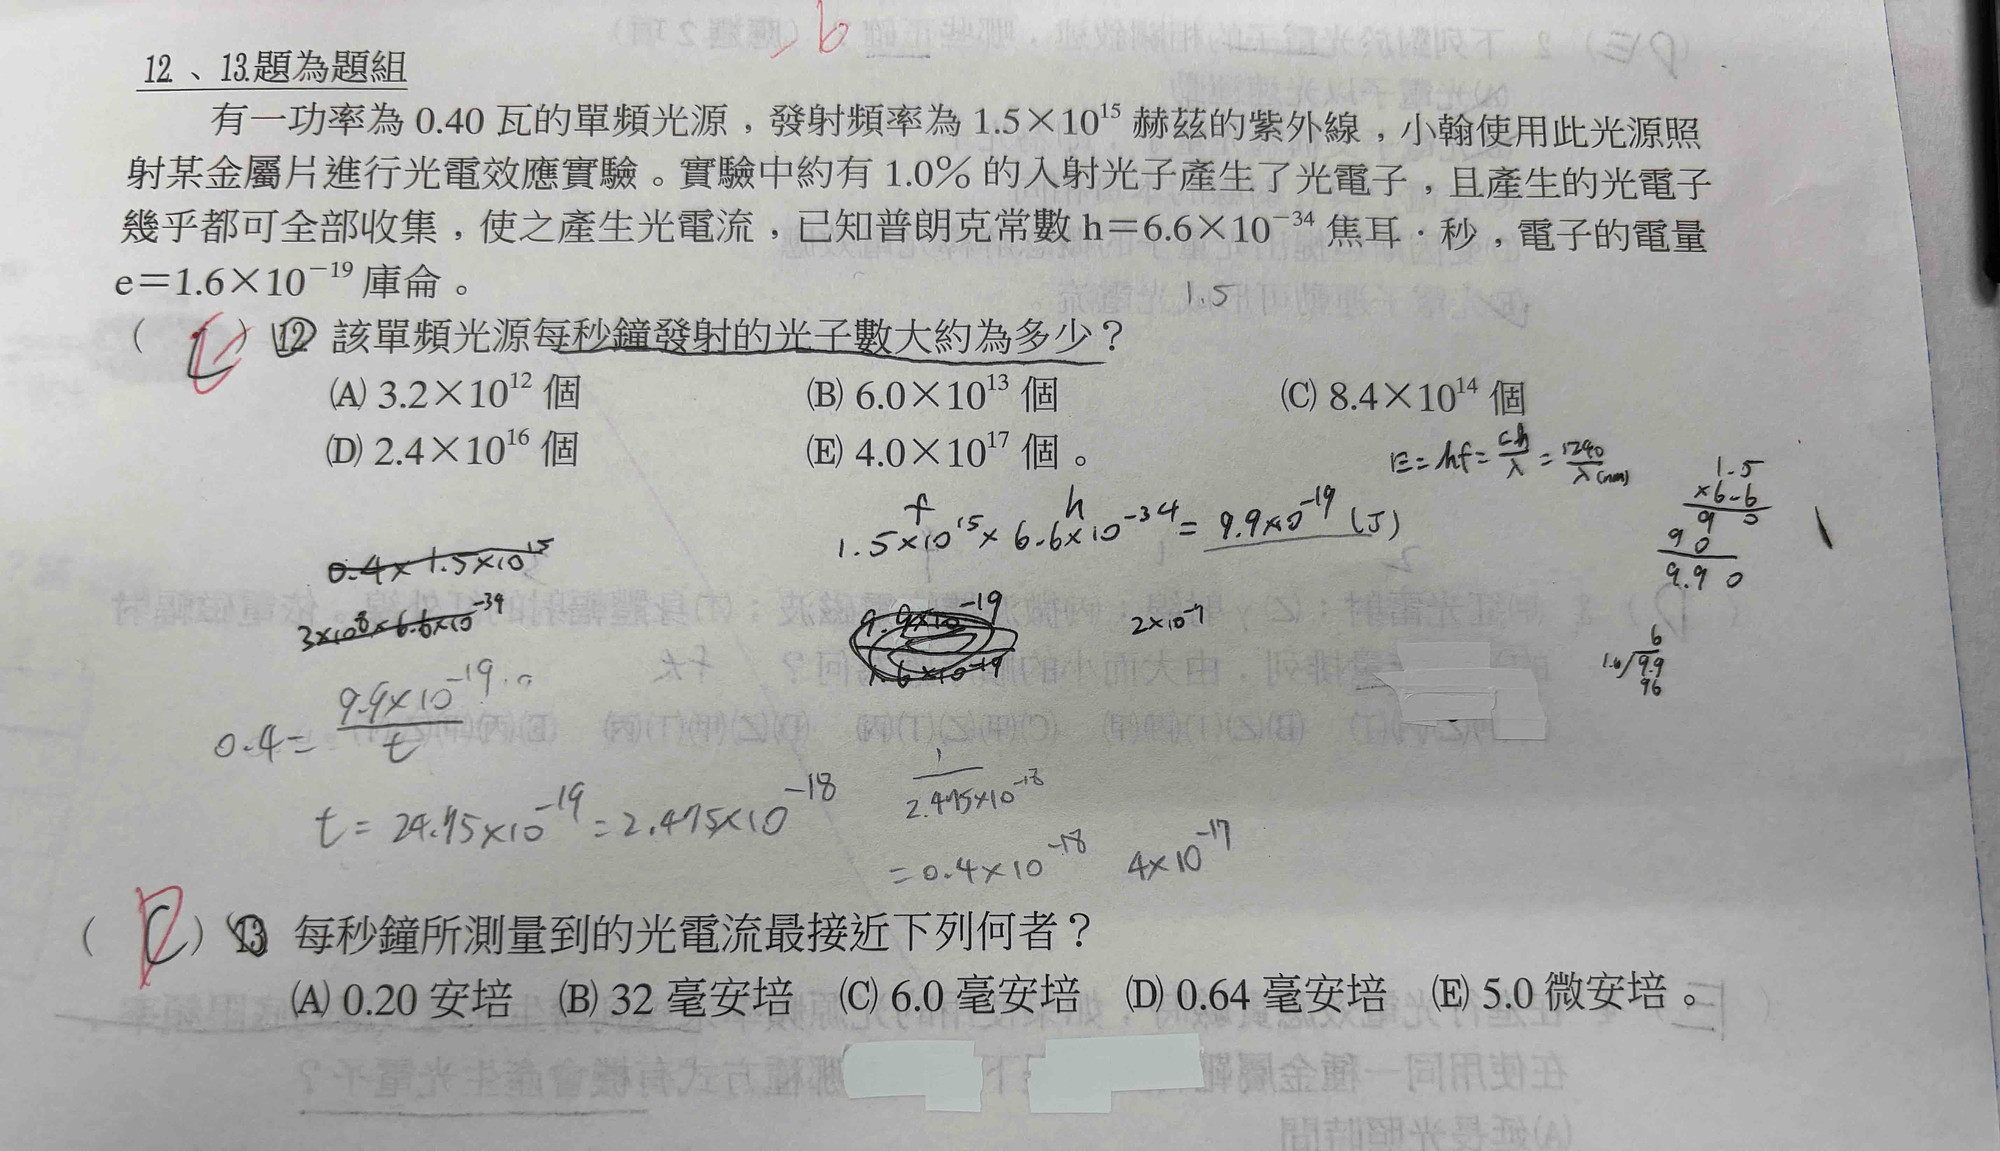 6
12、13.題為題組
有一功率為 0.40 瓦的單頻光源，發射頻率為 1.5×10¹⁵ 赫茲的紫外線，小翰使用此光源照
射某金屬片進行光電效應實驗。實驗中約有 1.0% 的入射光子產生了光電子，且產生的光電子
幾乎都可全部收集，使之產生光電流，已知普朗克常數 h＝6.6×10⁻³⁴ 焦耳．秒，電子的電量
e＝1.6×10⁻¹⁹ 庫侖。
1.5
( ) 12 該單頻光源每秒鐘發射的光子數大約為多少？
(A) 3.2×10¹² 個 (B) 6.0×10¹³ 個 (C) 8.4×10¹⁴ 個
(D) 2.4×10¹⁶ 個 (E) 4.0×10¹⁷ 個。
E=hf=ch/λ=1240/λ(nm)
1.5
×6.6
9 0
9 0
9.9 0
f h
1.5×10¹⁵×6.6×10⁻³⁴=9.9×10⁻¹⁹(J)
0.4×1.5×10¹⁵
3×10⁸×6.6×10⁻³⁴
9.9×10⁻¹⁹
1.6×10⁻¹⁹
2×10⁻⁷
6
1.6√9.9
96
0.4=9.9×10⁻¹⁹/t
t=24.75×10⁻¹⁹=2.475×10⁻¹⁸
1/2.475×10⁻¹⁸
=0.4×10⁻¹⁸ 4×10⁻¹⁷
( C ) 13 每秒鐘所測量到的光電流最接近下列何者？
(A) 0.20 安培 (B) 32 毫安培 (C) 6.0 毫安培 (D) 0.64 毫安培 (E) 5.0 微安培。